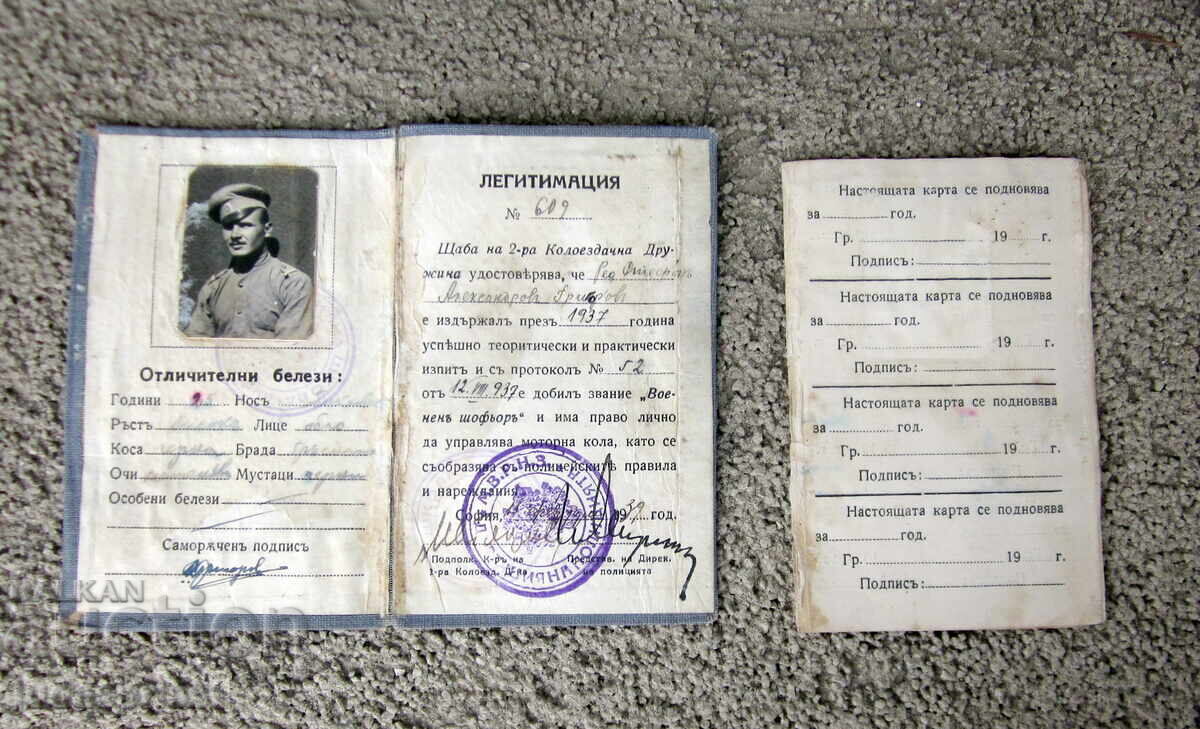 Отличителни белези:
Години Носъ
Ръстъ Лице
Коса черна Брада
Очи Мустаци черни
Особени белези
Саморѫченъ подпис
ЛЕГИТИМАЦИЯ
№ 609
Щаба на 2-ра Колоездачна Дру-
жина удостовѣрява, че Ред.
Александровъ
е издържалъ презъ 1937 година
успѣшно теоритически и практически
изпит и съ протоколъ № 52
отъ 12.VIII.937 е добил звание „Вое-
ненъ шофьоръ“ и има право лично
да управлява моторна кола, като се
съобразява съ полицейскитѣ правила
и нареждания.
София, 19 39 год.
Подполк. К-ръ на Представ. на Дирек.
2-ра Колоезд. Д-ва на полицията
М.В.Р.Н.З.
Настоящата карта се подновява
за год.
Гр. 19 г.
Подписъ:
Настоящата карта се подновява
за год.
Гр. 19 г.
Подписъ:
Настоящата карта се подновява
за год.
Гр. 19 г.
Подпись:
Настоящата карта се подновява
за год.
Гр. 19 г.
Подписъ:
BALKAN
auction